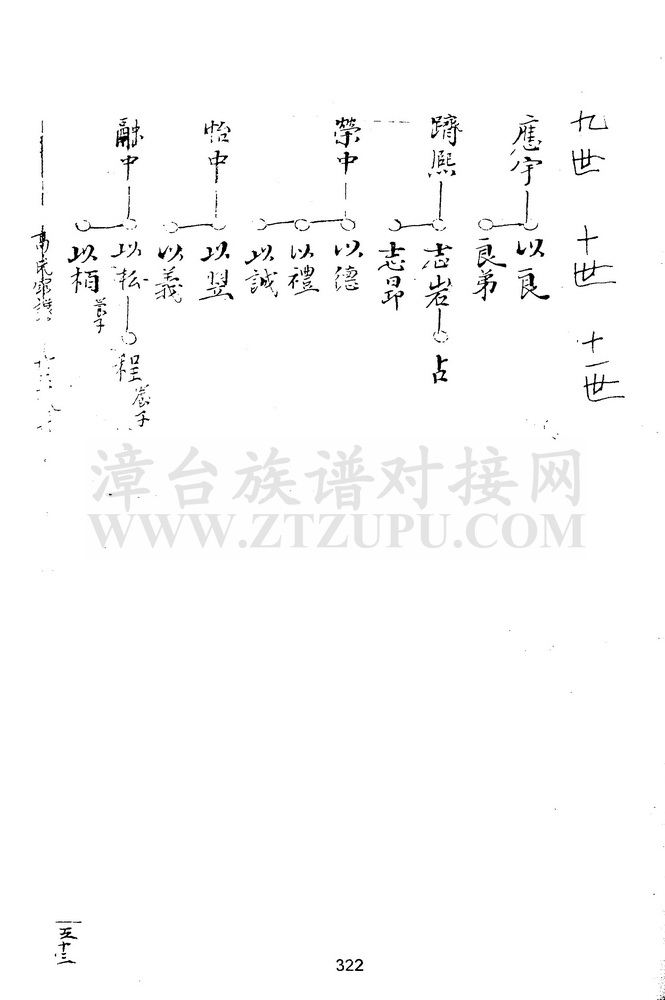 九世 十世 十一世
應宇
以良
良弟
躋熙
志岩
志昴
占
榮中
以德
以禮
以誠
怡中
以翌
以義
融中
以松
以栢
程
漳台族谱对接网
WWW.ZTZUPU.COM
五十三
322